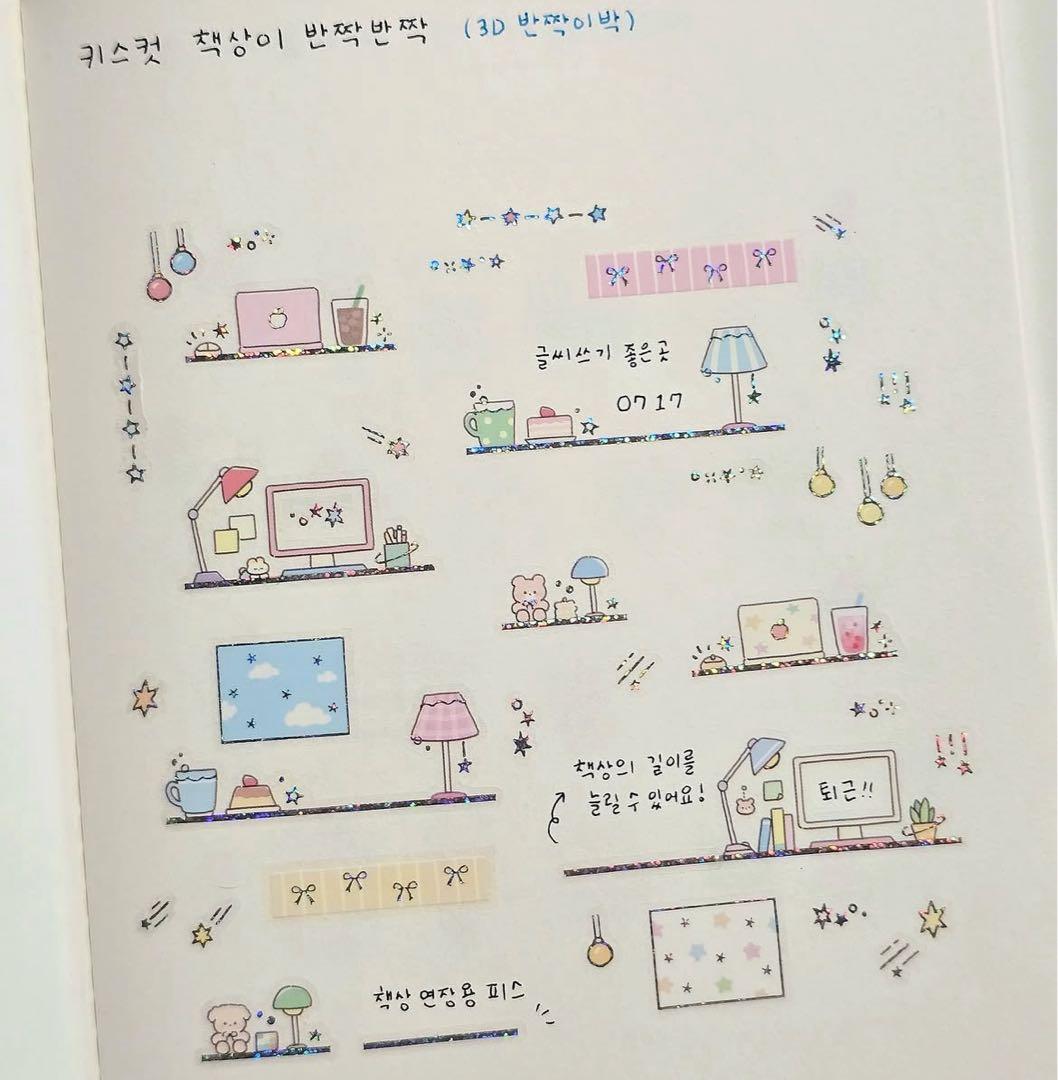 키스컷 책상이 반짝반짝 (3D 반짝이박)
글씨쓰기 좋은곳
0717
책상의 길이를
늘릴 수 있어요!
퇴근!!
책상 연장용 피스